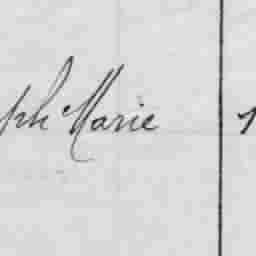 ph Marie 1